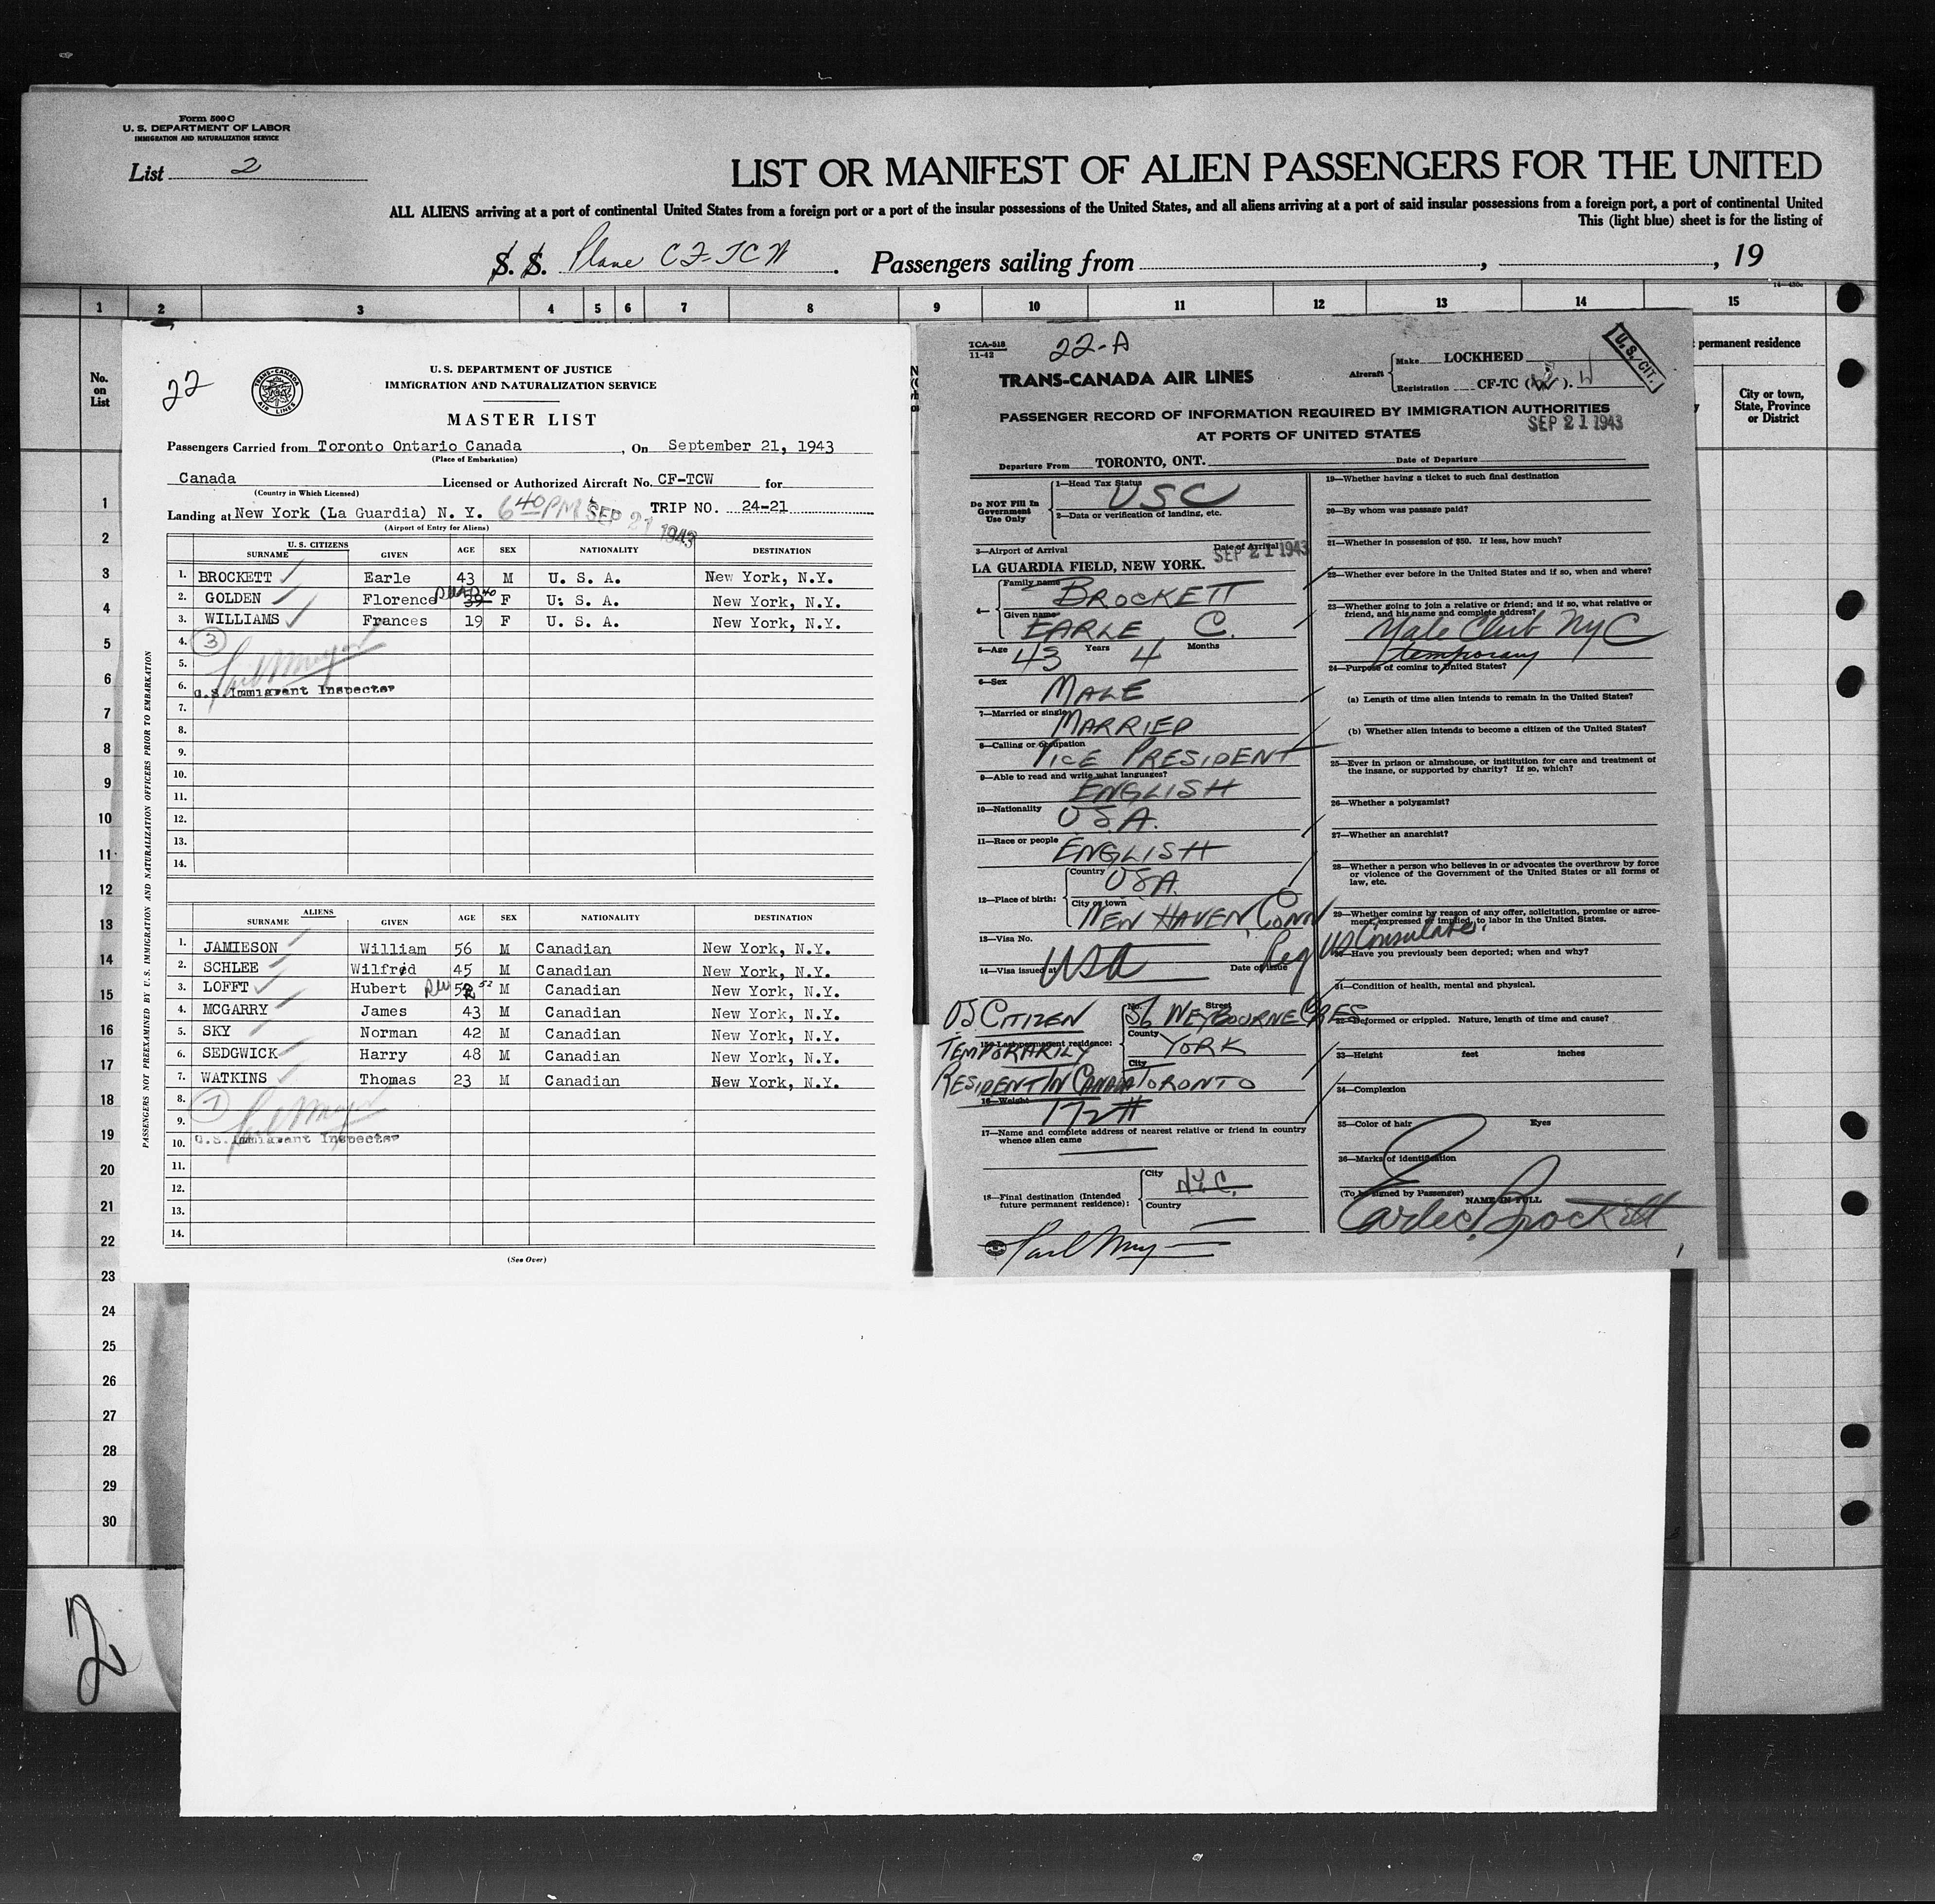 Form 500 C
U. S. DEPARTMENT OF LABOR
IMMIGRATION AND NATURALIZATION SERVICE
List 2
LIST OR MANIFEST OF ALIEN PASSENGERS FOR THE UNITED
ALL ALIENS arriving at a port of continental United States from a foreign port or a port of the insular possessions of the United States, and all aliens arriving at a port of said insular possessions from a foreign port, a port of continental United
This (light blue) sheet is for the listing of
S. S. Plane CF-TCW . Passengers sailing from , , 19
1 2 3 4 5 6 7 8 9 10 11 12 13 14 15
permanent residence
No. on List
City or town, State, Province or District
1
2
3
4
5
6
7
8
9
10
11
12
13
14
15
16
17
18
19
20
21
22
23
24
25
26
27
28
29
30
2
22
TRANS-CANADA AIR LINES
U. S. DEPARTMENT OF JUSTICE
IMMIGRATION AND NATURALIZATION SERVICE
MASTER LIST
Passengers Carried from Toronto Ontario Canada , On September 21, 1943
(Place of Embarkation)
Canada Licensed or Authorized Aircraft No. CF-TCW for
(Country in Which Licensed)
Landing at New York (La Guardia) N. Y. 6 40 PM SEP 21 1943 TRIP NO. 24-21
(Airport of Entry for Aliens)
U. S. CITIZENS
SURNAME GIVEN AGE SEX NATIONALITY DESTINATION
1. BROCKETT Earle 43 M U. S. A. New York, N.Y.
2. GOLDEN Florence 39 40 F U. S. A. New York, N.Y.
3. WILLIAMS Frances 19 F U. S. A. New York, N.Y.
4. 3
5.
6. U.S. Immigrant Inspector
7.
8.
9.
10.
11.
12.
13.
14.
ALIENS
SURNAME GIVEN AGE SEX NATIONALITY DESTINATION
1. JAMIESON William 56 M Canadian New York, N.Y.
2. SCHLEE Wilfred 45 M Canadian New York, N.Y.
3. LOFFT Hubert 52 M Canadian New York, N.Y.
4. MCGARRY James 43 M Canadian New York, N.Y.
5. SKY Norman 42 M Canadian New York, N.Y.
6. SEDGWICK Harry 48 M Canadian New York, N.Y.
7. WATKINS Thomas 23 M Canadian New York, N.Y.
8. 7
9.
10. U.S. Immigrant Inspector
11.
12.
13.
14.
(See Over)
PASSENGERS NOT PREEXAMINED BY U. S. IMMIGRATION AND NATURALIZATION OFFICERS PRIOR TO EMBARKATION
TCA-518
11-42
22-A
TRANS-CANADA AIR LINES
Aircraft Make LOCKHEED
Registration CF-TC (W). W
U. S. CIT.
PASSENGER RECORD OF INFORMATION REQUIRED BY IMMIGRATION AUTHORITIES
AT PORTS OF UNITED STATES
SEP 21 1943
Departure From TORONTO, ONT. Date of Departure
Do NOT Fill In Government Use Only
1—Head Tax Status USC
2—Data or verification of landing, etc.
3—Airport of Arrival Date of Arrival
LA GUARDIA FIELD, NEW YORK. SEP 21 1943
4— Family name BROCKETT
Given name EARLE C.
5—Age 43 Years 4 Months
6—Sex MALE
7—Married or single MARRIED
8—Calling or occupation VICE PRESIDENT
9—Able to read and write what languages? ENGLISH
10—Nationality USA.
11—Race or people ENGLISH
12—Place of birth: Country USA.
City or town NEW HAVEN, CONN
13—Visa No.
14—Visa issued at USA Date of issue Reg US Consulate
US CITIZEN TEMPORARILY RESIDENT IN CANADA
15—Last permanent residence: No. Street 56 WEYBOURNE CRES
County YORK
City TORONTO
16—Weight 172 #
17—Name and complete address of nearest relative or friend in country whence alien came
18—Final destination (Intended future permanent residence): City N.Y.C.
Country
19—Whether having a ticket to such final destination
20—By whom was passage paid?
21—Whether in possession of $50. If less, how much?
22—Whether ever before in the United States and if so, when and where?
23—Whether going to join a relative or friend; and if so, what relative or friend, and his name and complete address?
Yale Club NYC
temporary
24—Purpose of coming to United States?
(a) Length of time alien intends to remain in the United States?
(b) Whether alien intends to become a citizen of the United States?
25—Ever in prison or almshouse, or institution for care and treatment of the insane, or supported by charity? If so, which?
26—Whether a polygamist?
27—Whether an anarchist?
28—Whether a person who believes in or advocates the overthrow by force or violence of the Government of the United States or all forms of law, etc.
29—Whether coming by reason of any offer, solicitation, promise or agreement, expressed or implied, to labor in the United States.
30—Have you previously been deported; when and why?
31—Condition of health, mental and physical.
32—Deformed or crippled. Nature, length of time and cause?
33—Height feet inches
34—Complexion
35—Color of hair Eyes
36—Marks of identification
(To be signed by Passenger) NAME IN FULL
Earle C. Brockett
1